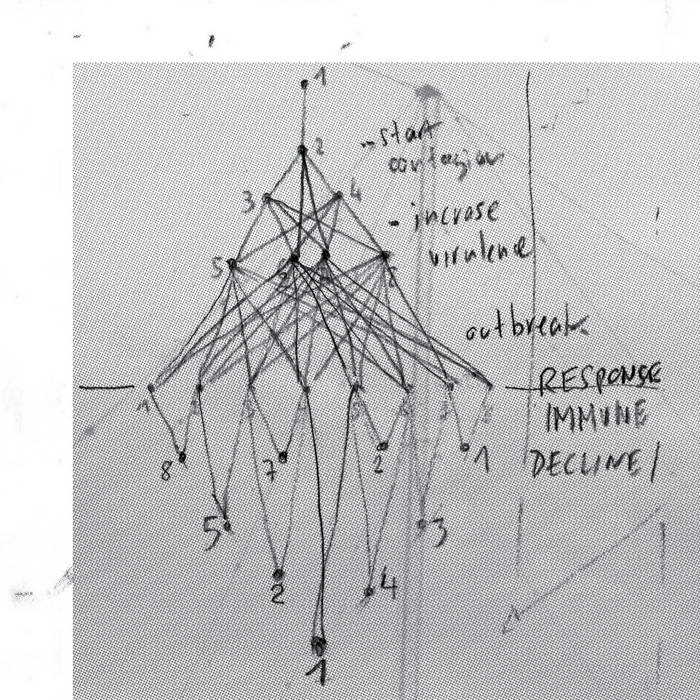 1
2
- start
contagion
3 4
- incrase
virulence
5
outbreak
RESPONSE
IMMUNE
DECLINE
8 7 2 1
5 3
2 4
1